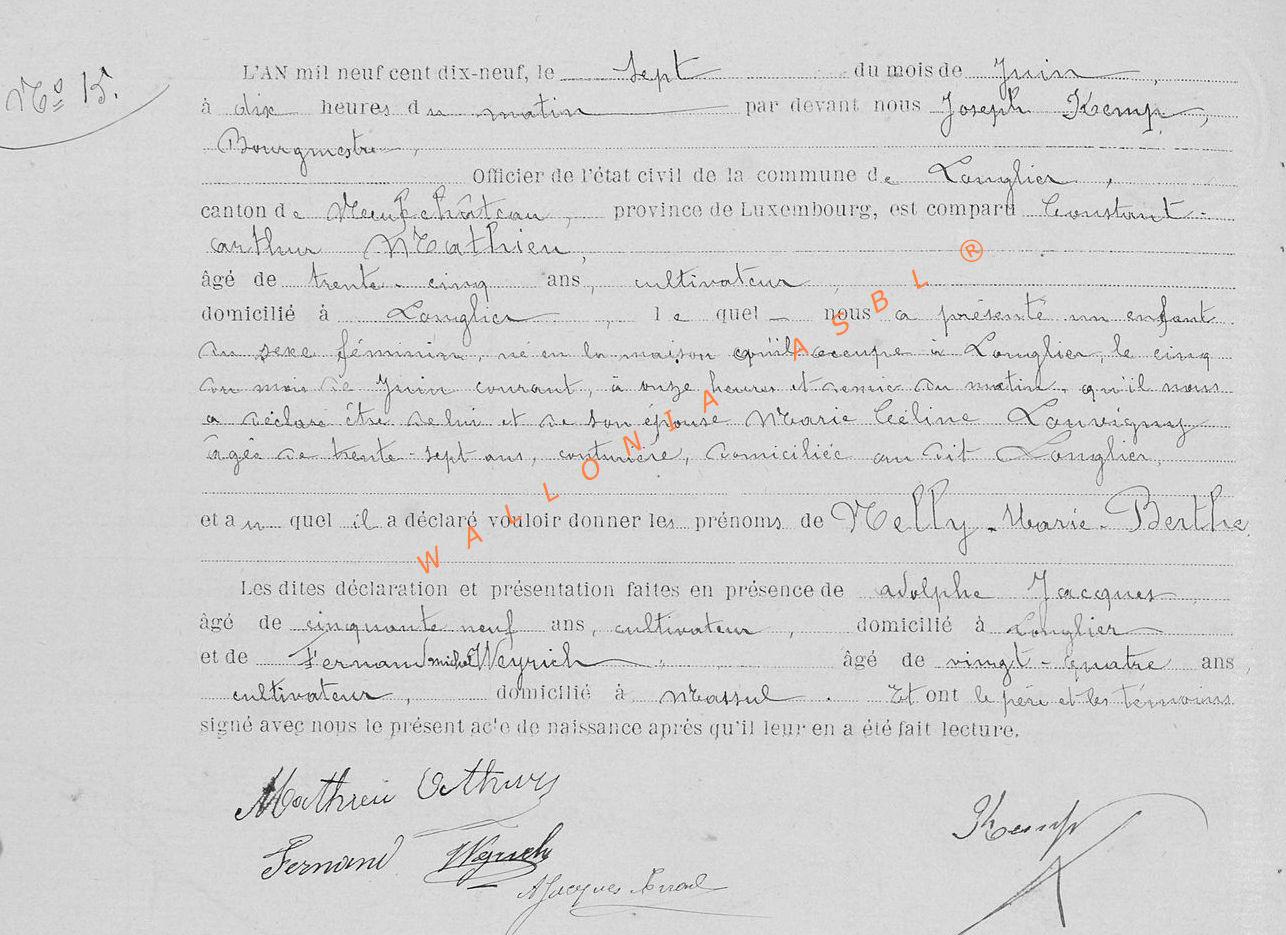 Nº 15.
L'AN mil neuf cent dix-neuf, le sept du mois de Juin,
à dix heures du matin par devant nous Joseph Kemp,
Bourgmestre,
Officier de l'état civil de la commune de Longlier,
canton de Neufchâteau, province de Luxembourg, est comparu Constant-
arthur Mathieu,
âgé de trente-cinq ans, cultivateur,
domicilié à Longlier, lequel nous a présenté un enfant
du sexe féminin, né en la maison qu'il occupe à Longlier, le cinq
du mois de Juin courant, à onze heures et demie du matin, qu'il nous
a déclaré être de lui et de son épouse Marie Céline Louvigny
âgée de trente-sept ans, couturière, domiciliée au dit Longlier,
et auquel il a déclaré vouloir donner les prénoms de Nelly-Marie-Berthe.
Les dites déclaration et présentation faites en présence de adolphe Jacques,
âgé de cinquante neuf ans, cultivateur, domicilié à Longlier
et de Fernand michel Weyrich, âgé de vingt-quatre ans,
cultivateur, domicilié à Massul. Et ont le père et les témoins
signé avec nous le présent acte de naissance après qu'il leur en a été fait lecture.
Mathieu Arthur
Kemp
Fernand Weyrich
AJacques
WALLONIA ASBL ®